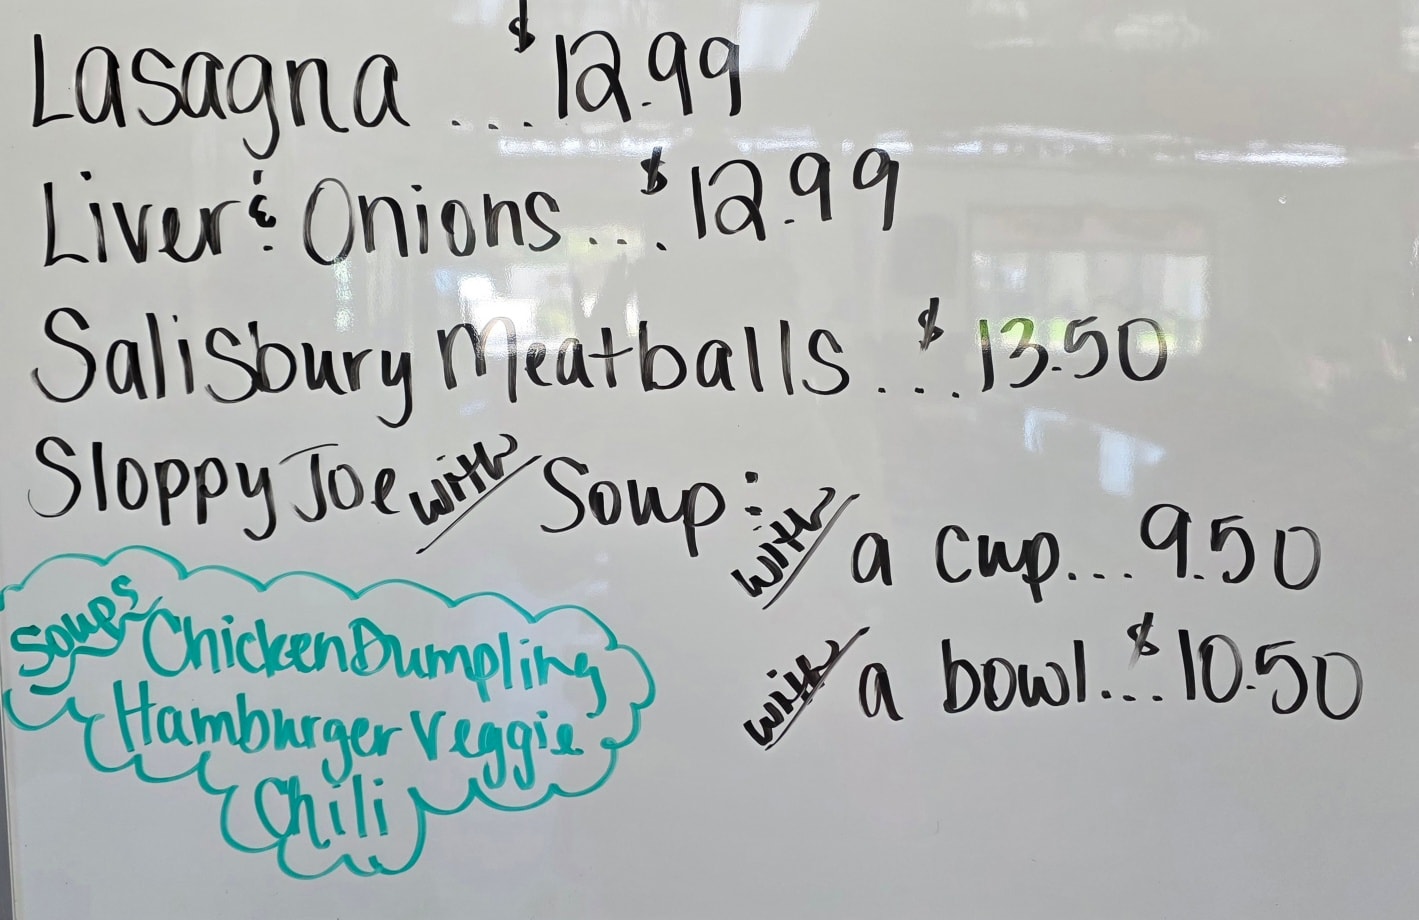 Lasagna ... $12.99
Liver & Onions ... $12.99
Salisbury Meatballs ... $13.50
Sloppy Joe with Soup:
with a cup... 9.50
with a bowl... $10.50
Soups
Chicken Dumpling
Hamburger Veggie
Chili